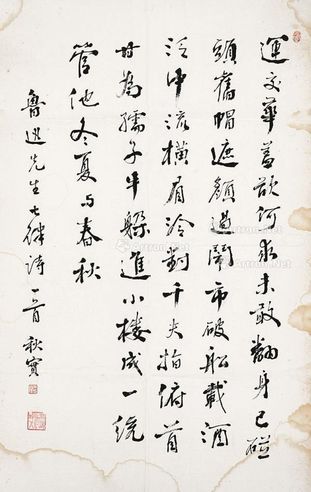 運交華蓋欲何求未敢翻身已碰
頭舊帽遮顏過鬧市破船載酒
泛中流橫眉冷對千夫指俯首
甘為孺子牛躲進小樓成一統
管他冬夏与春秋
魯迅先生七律詩一首 秋實
Artron.Net